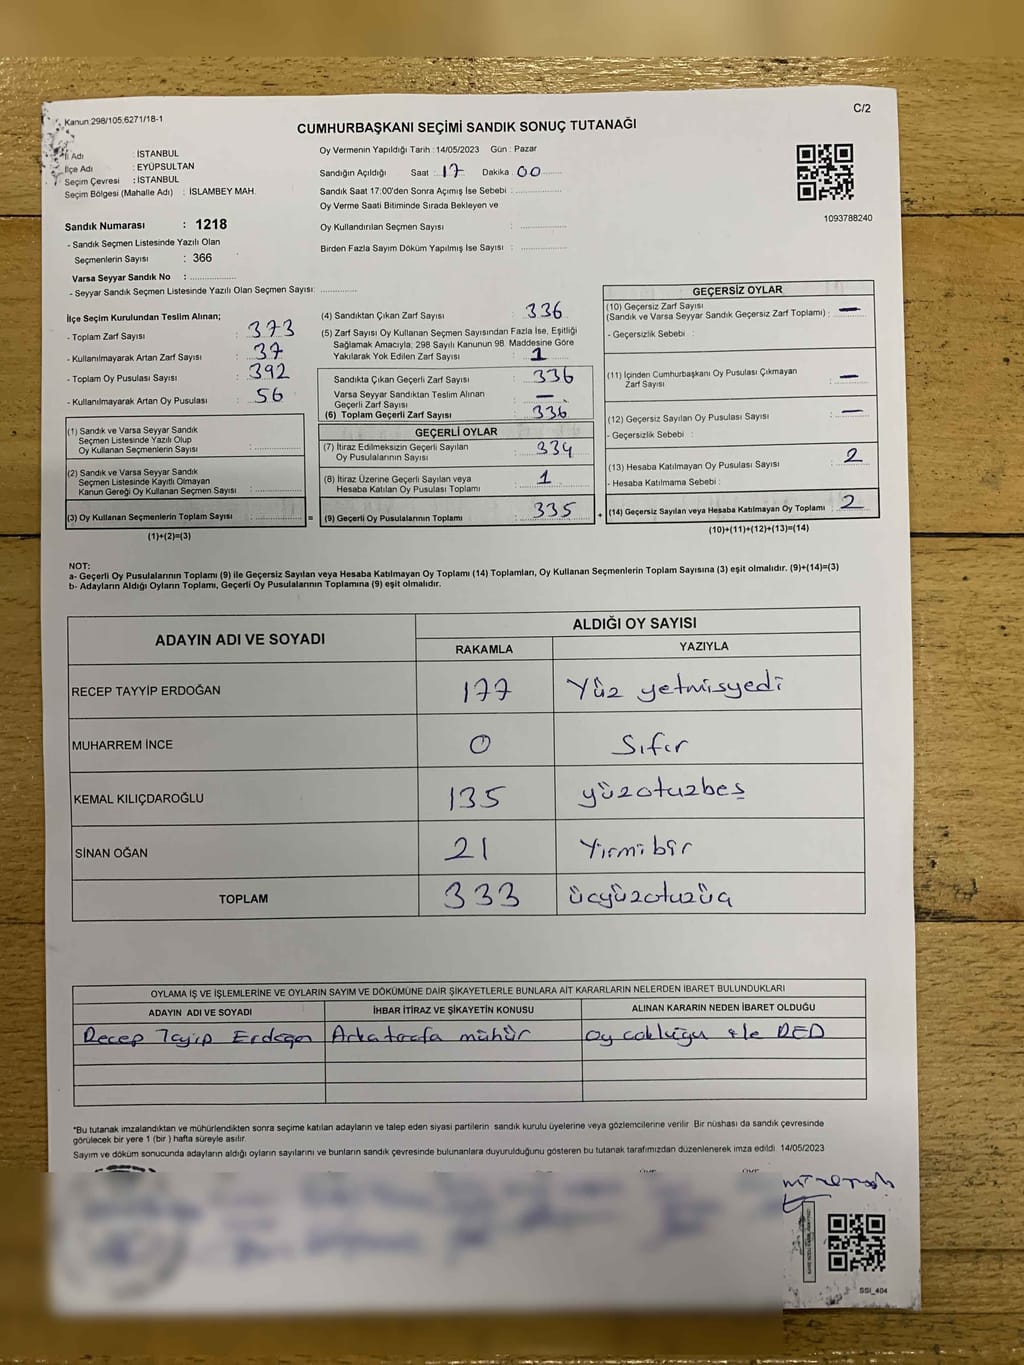 Kanun:298/105,6271/18-1
C/2
CUMHURBAŞKANI SEÇİMİ SANDIK SONUÇ TUTANAĞI
İl Adı : İSTANBUL
İlçe Adı : EYÜPSULTAN
Seçim Çevresi : İSTANBUL
Seçim Bölgesi (Mahalle Adı) : İSLAMBEY MAH.
Sandık Numarası : 1218
- Sandık Seçmen Listesinde Yazılı Olan
Seçmenlerin Sayısı : 366
Varsa Seyyar Sandık No :
- Seyyar Sandık Seçmen Listesinde Yazılı Olan Seçmen Sayısı:
Oy Vermenin Yapıldığı Tarih : 14/05/2023 Gün : Pazar
Sandığın Açıldığı Saat : 17 Dakika : 00
Sandık Saat 17:00'den Sonra Açımış İse Sebebi :
Oy Verme Saati Bitiminde Sırada Bekleyen ve
Oy Kullandırılan Seçmen Sayısı :
Birden Fazla Sayım Döküm Yapılmış İse Sayısı :
1093788240
İlçe Seçim Kurulundan Teslim Alınan;
- Toplam Zarf Sayısı : 373
- Kullanılmayarak Artan Zarf Sayısı : 37
- Toplam Oy Pusulası Sayısı : 392
- Kullanılmayarak Artan Oy Pusulası : 56
(1) Sandık ve Varsa Seyyar Sandık
Seçmen Listesinde Yazılı Olup
Oy Kullanan Seçmenlerin Sayısı :
(2) Sandık ve Varsa Seyyar Sandık
Seçmen Listesinde Kayıtlı Olmayan
Kanun Gereği Oy Kullanan Seçmen Sayısı :
(3) Oy Kullanan Seçmenlerin Toplam Sayısı : =
(1)+(2)=(3)
(4) Sandıktan Çıkan Zarf Sayısı : 336
(5) Zarf Sayısı Oy Kullanan Seçmen Sayısından Fazla İse, Eşitliği
Sağlamak Amacıyla, 298 Sayılı Kanunun 98. Maddesine Göre
Yakılarak Yok Edilen Zarf Sayısı : 1
Sandıkta Çıkan Geçerli Zarf Sayısı : 336
Varsa Seyyar Sandıktan Teslim Alınan
Geçerli Zarf Sayısı : —
(6) Toplam Geçerli Zarf Sayısı : 336
GEÇERLİ OYLAR
(7) İtiraz Edilmeksizin Geçerli Sayılan
Oy Pusulalarının Sayısı : 334
(8) İtiraz Üzerine Geçerli Sayılan veya
Hesaba Katılan Oy Pusulası Toplamı : 1
(9) Geçerli Oy Pusulalarının Toplamı : 335 +
GEÇERSİZ OYLAR
(10) Geçersiz Zarf Sayısı
(Sandık ve Varsa Seyyar Sandık Geçersiz Zarf Toplamı) : —
- Geçersizlik Sebebi :
(11) İçinden Cumhurbaşkanı Oy Pusulası Çıkmayan
Zarf Sayısı : —
(12) Geçersiz Sayılan Oy Pusulası Sayısı : —
- Geçersizlik Sebebi :
(13) Hesaba Katılmayan Oy Pusulası Sayısı : 2
- Hesaba Katılmama Sebebi :
(14) Geçersiz Sayılan veya Hesaba Katılmayan Oy Toplamı : 2
(10)+(11)+(12)+(13)=(14)
NOT:
a- Geçerli Oy Pusulalarının Toplamı (9) ile Geçersiz Sayılan veya Hesaba Katılmayan Oy Toplamı (14) Toplamları, Oy Kullanan Seçmenlerin Toplam Sayısına (3) eşit olmalıdır. (9)+(14)=(3)
b- Adayların Aldığı Oyların Toplamı, Geçerli Oy Pusulalarının Toplamına (9) eşit olmalıdır.
ADAYIN ADI VE SOYADI ALDIĞI OY SAYISI
RAKAMLA YAZIYLA
RECEP TAYYİP ERDOĞAN 177 Yüz yetmisyedi
MUHARREM İNCE 0 Sıfır
KEMAL KILIÇDAROĞLU 135 yüzotuzbeş
SİNAN OĞAN 21 Yirmibir
TOPLAM 333 ücyüzotuzüç
OYLAMA İŞ VE İŞLEMLERİNE VE OYLARIN SAYIM VE DÖKÜMÜNE DAİR ŞİKAYETLERLE BUNLARA AİT KARARLARIN NELERDEN İBARET BULUNDUKLARI
ADAYIN ADI VE SOYADI İHBAR İTİRAZ VE ŞİKAYETİN KONUSU ALINAN KARARIN NEDEN İBARET OLDUĞU
Recep Tayip Erdoğan Arka tarafa mühür Oy cokluğu ile RED
*Bu tutanak imzalandıktan ve mühürlendikten sonra seçime katılan adayların ve talep eden siyasi partilerin sandık kurulu üyelerine veya gözlemcilerine verilir. Bir nüshası da sandık çevresinde
görülecek bir yere 1 (bir ) hafta süreyle asılır.
Sayım ve döküm sonucunda adayların aldığı oyların sayılarını ve bunların sandık çevresinde bulunanlara duyurulduğunu gösteren bu tutanak tarafımızdan düzenlenerek imza edildi. 14/05/2023
SSI_404